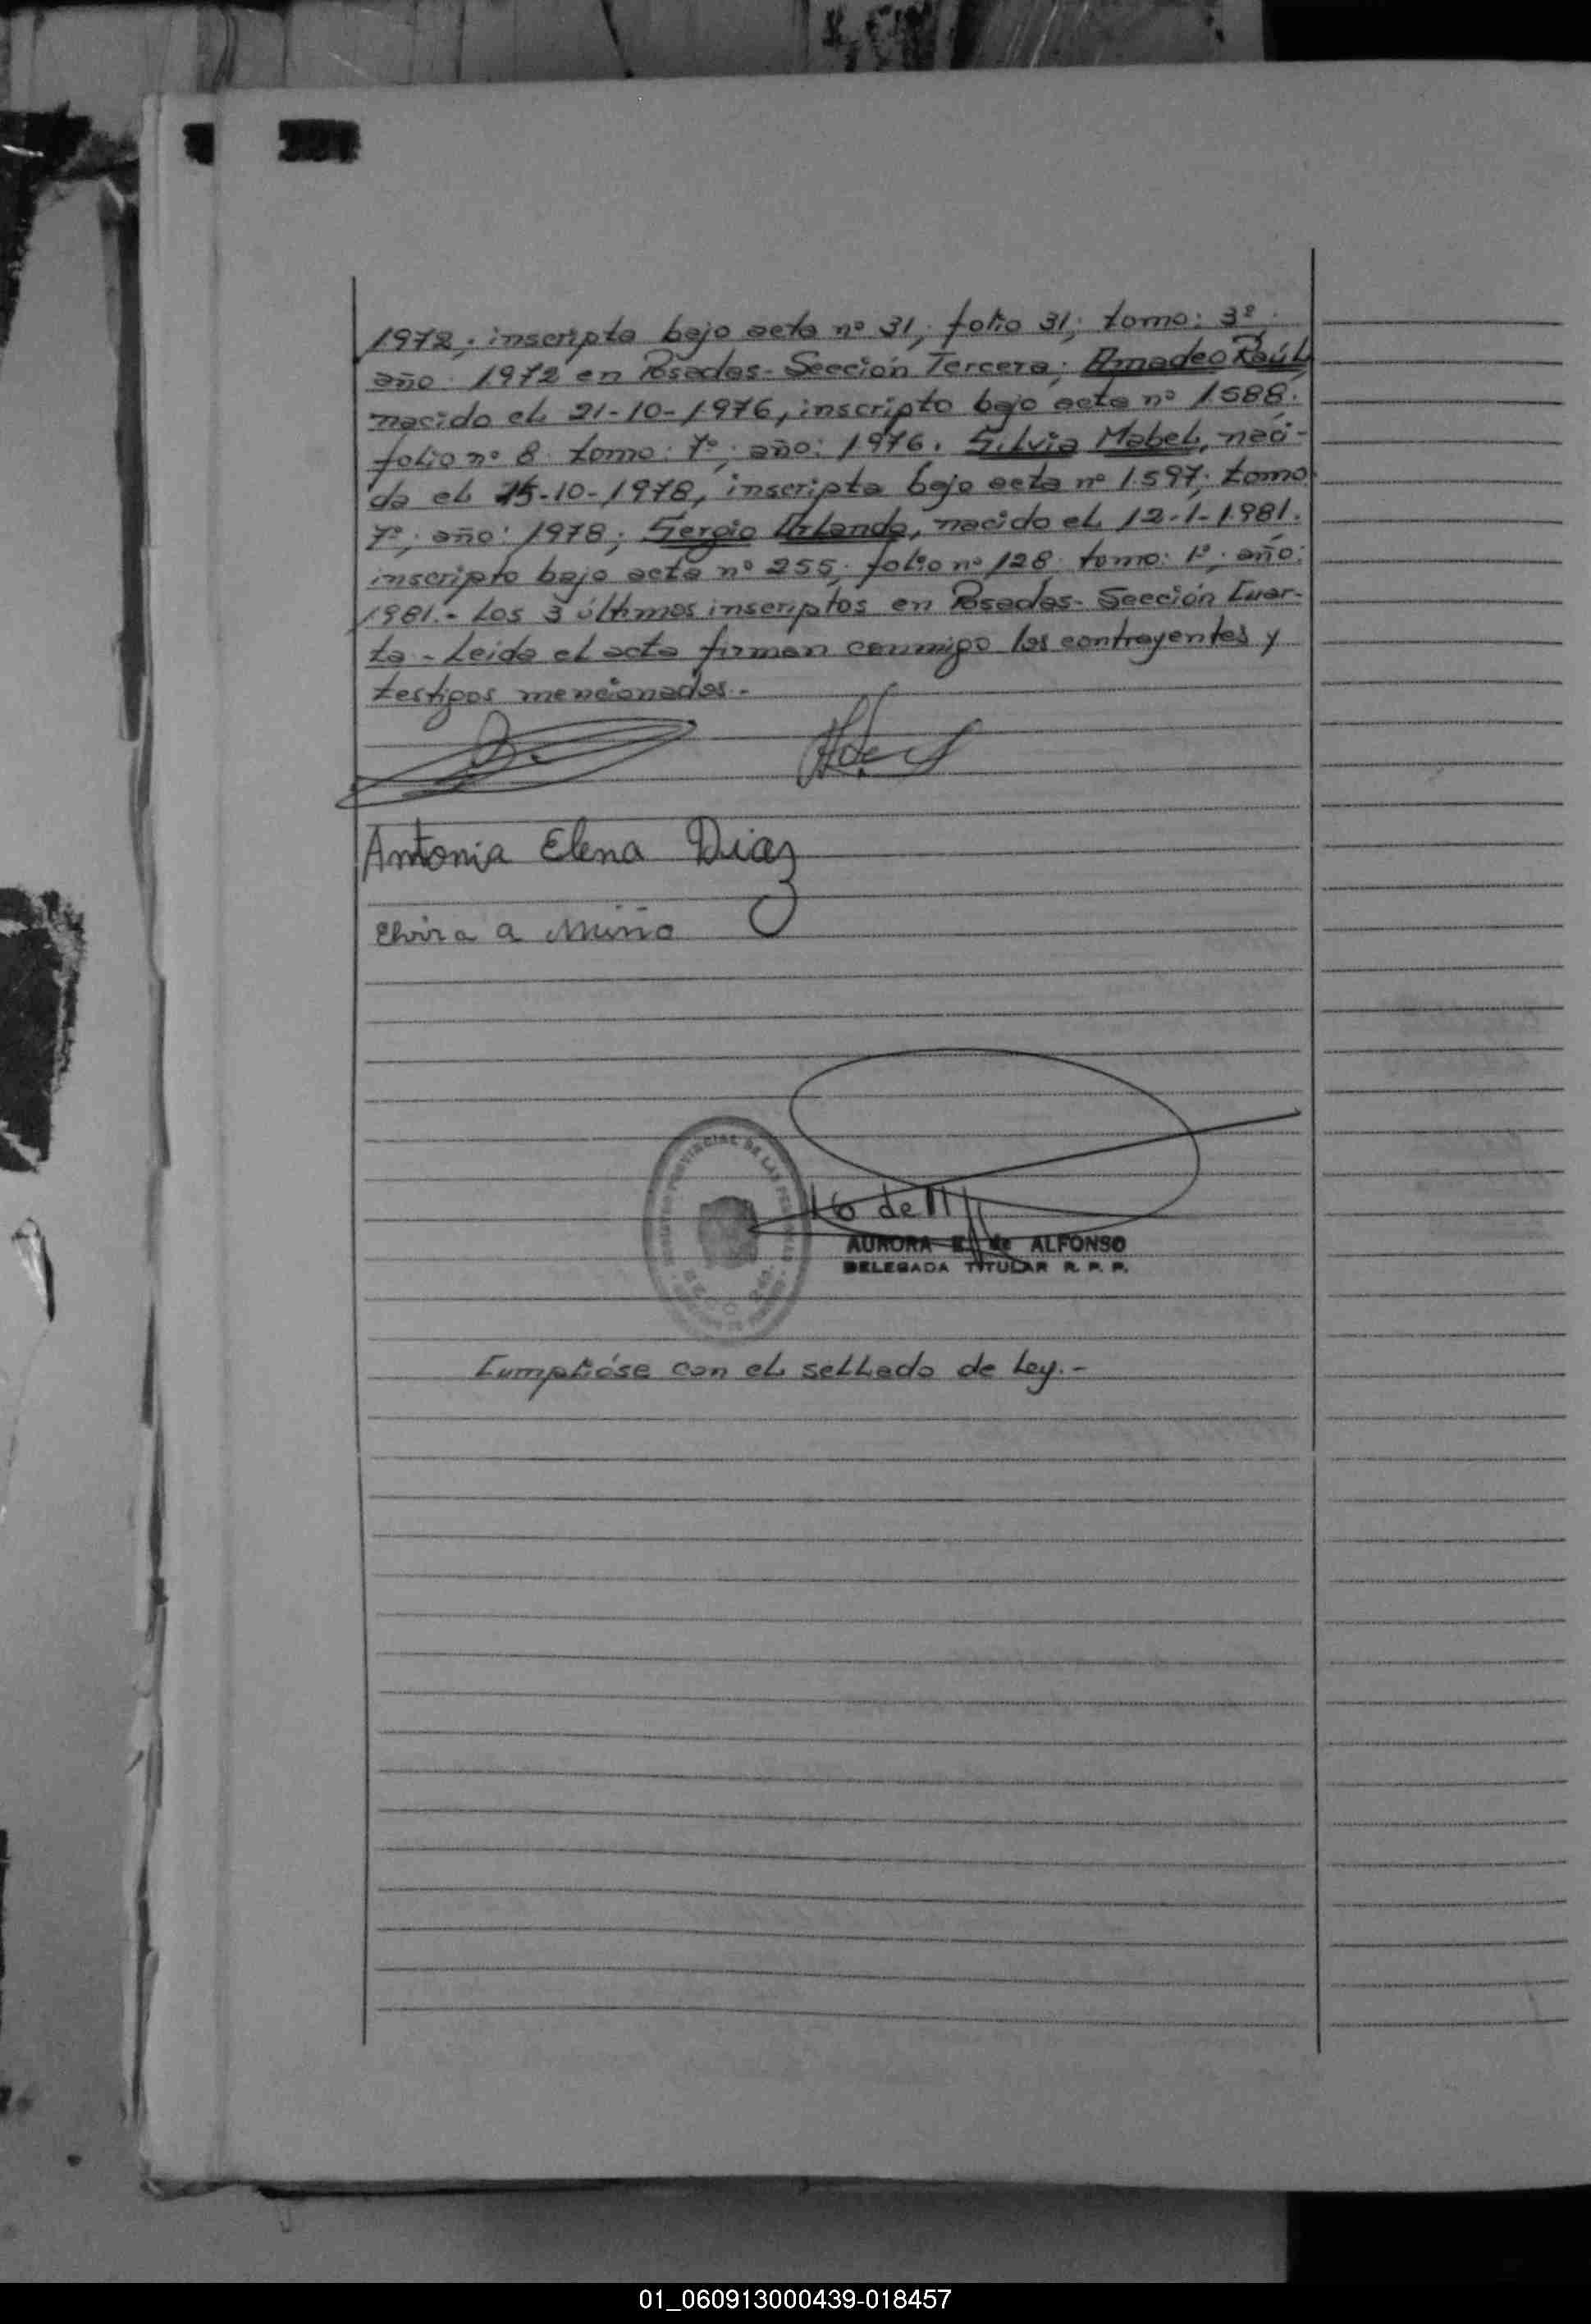 1972; inscripta bajo acta nº 31, folio 31; tomo: 3º,
año 1972 en Posadas-Sección Tercera; Amadeo Raúl,
nacido el 21-10-1976, inscripto bajo acta nº 1588.
folio nº 8 tomo: 7º; año: 1976. Silvia Mabel, naci-
da el 15-10-1978, inscripta bajo acta nº 1.597; tomo
7º; año: 1978; Sergio Orlando, nacido el 12-1-1.981.
inscripto bajo acta nº 255; folio nº 128 tomo: 1º; año:
1981.- Los 3 últimos inscriptos en Posadas-Sección Cuar-
ta - Leida el acta firman conmigo los contrayentes y
testigos mencionados.-
Antonia Elena Diaz
Elvira a Miño
PROVINCIAL DE LAS PERSONAS
16 de 11
AURORA E. de ALFONSO
DELEGADA TITULAR R. P. P.
Cumplióse con el sellado de Ley.-
01_060913000439-018457